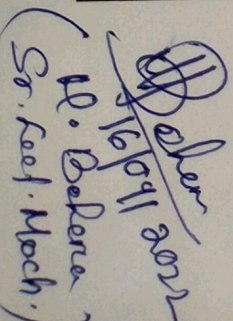 16/04/2022
(H. Behera
Sr. Lect. Mech.)